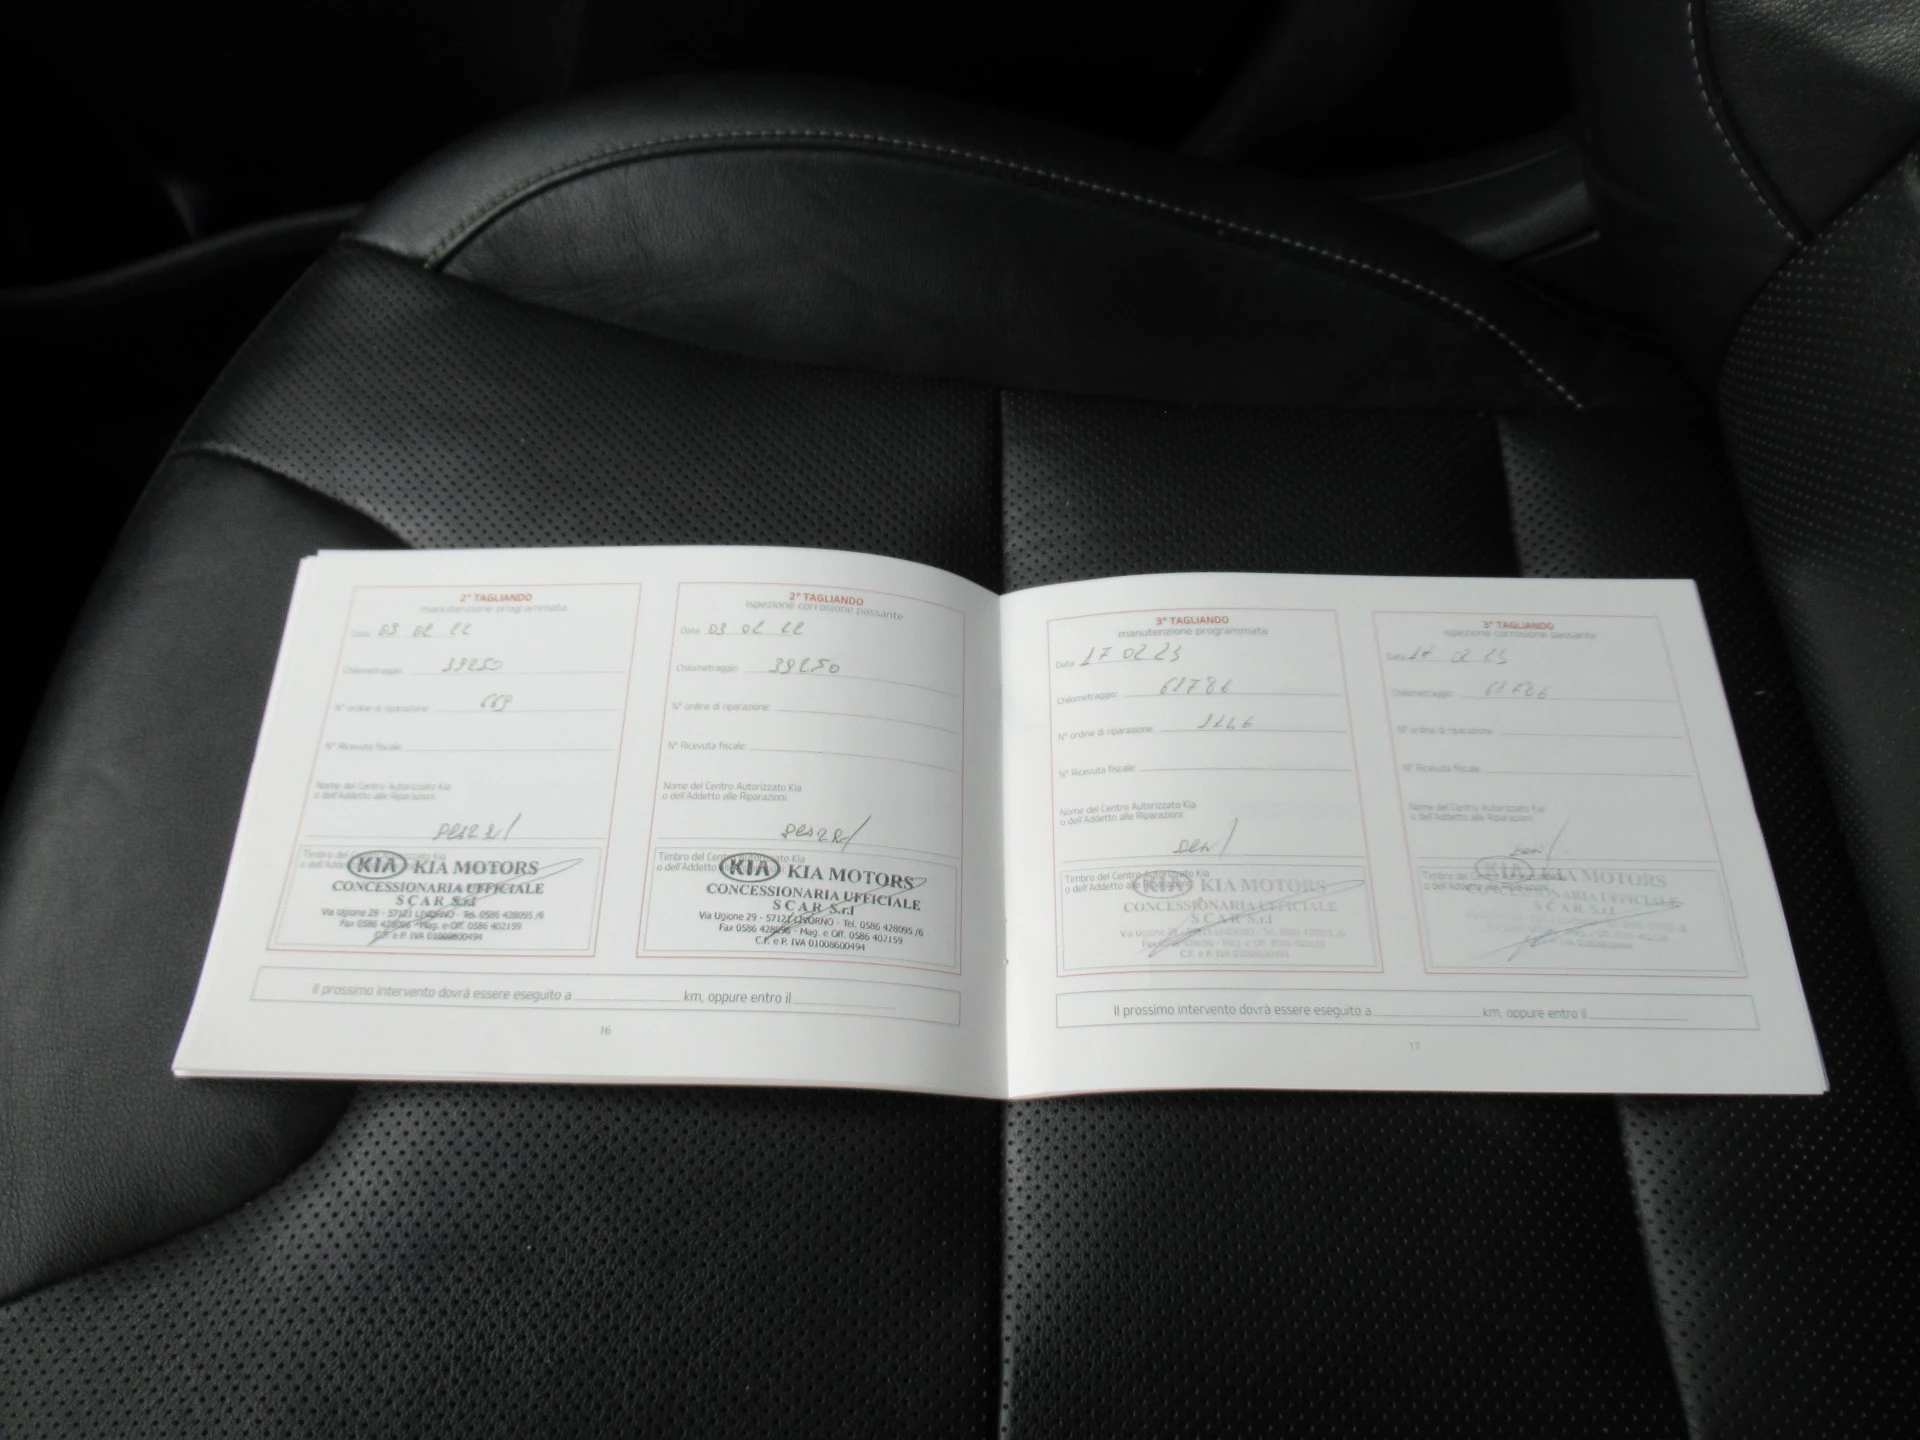 2° TAGLIANDO
manutenzione programmata
Data 03 02 22
Chilometraggio 39250
N° ordine di riparazione: 669
N° Ricevuta fiscale:
Nome del Centro Autorizzato Kia
o dell'Addetto alle Riparazioni:
Timbro del Centro Autorizzato Kia
o dell'Addetto
KIA KIA MOTORS
CONCESSIONARIA UFFICIALE
SCAR S.r.l
Via Ugione 29 - 57121 LIVORNO - Tel. 0586 428095 /6
Fax 0586 428096 - Mag. e Off. 0586 402159
C.F. e P. IVA 01008600494
2° TAGLIANDO
ispezione corrosione passante
Data 03 02 22
Chilometraggio 39250
N° ordine di riparazione:
N° Ricevuta fiscale:
Nome del Centro Autorizzato Kia
o dell'Addetto alle Riparazioni:
Timbro del Centro Autorizzato Kia
o dell'Addetto
KIA KIA MOTORS
CONCESSIONARIA UFFICIALE
SCAR S.r.l
Via Ugione 29 - 57121 LIVORNO - Tel. 0586 428095 /6
Fax 0586 428096 - Mag. e Off. 0586 402159
C.F. e P. IVA 01008600494
Il prossimo intervento dovrà essere eseguito a km, oppure entro il
16
3° TAGLIANDO
manutenzione programmata
Data 17 02 23
Chilometraggio: 61786
N° ordine di riparazione:
N° Ricevuta fiscale:
Nome del Centro Autorizzato Kia
o dell'Addetto alle Riparazioni:
Timbro del Centro Autorizzato Kia
o dell'Addetto alle Riparazioni
KIA KIA MOTORS
CONCESSIONARIA UFFICIALE
SCAR S.r.l
Via Ugione 29 - 57121 LIVORNO - Tel. 0586 428095 /6
Fax 0586 428096 - Mag. e Off. 0586 402159
C.F. e P. IVA 01008600494
3° TAGLIANDO
ispezione corrosione passante
Data 17 02 23
Chilometraggio 61786
N° ordine di riparazione:
N° Ricevuta fiscale
Nome del Centro Autorizzato Kia
o dell'Addetto alle Riparazioni:
KIA KIA MOTORS
SCAR S.r.l
Il prossimo intervento dovrà essere eseguito a km, oppure entro il
17